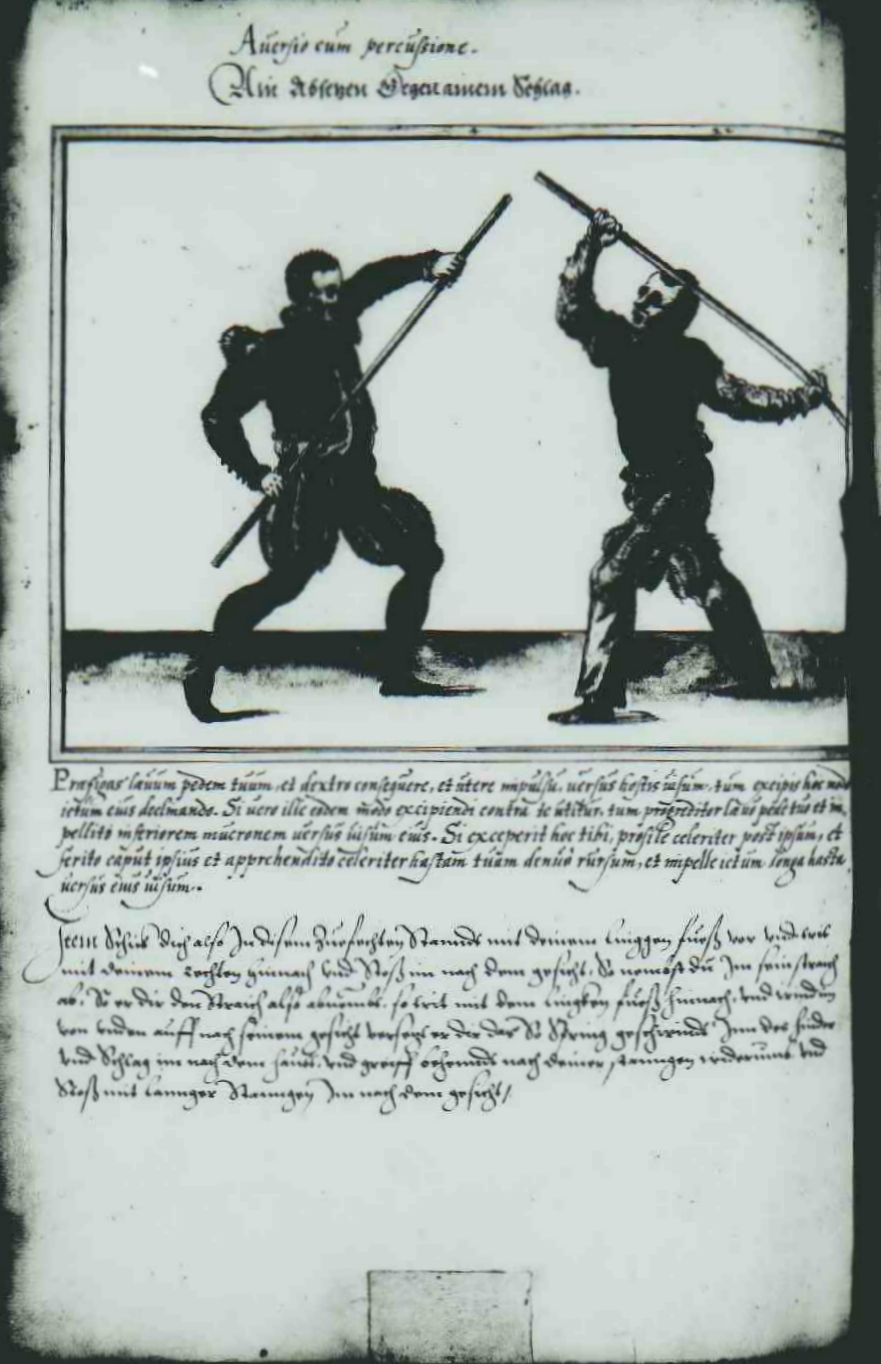 Auersio cum percussione.
Ain Absetzen Gegen ainem Schlag.
Praefigas laeuum pedem tuum, et dextro consequere, et utere impulsu, uersus hostis uisum, tum excipis hoc modo
ictum eius declinando. Si uero ille eodem modo excipiendi contra te utitur, tum progreditor laeuo pede tuo et im,
pellito inferiorem mucronem uersus uisum eius. Si exceperit hoc tibi, prosile celeriter post ipsum, et
ferito caput ipsius et apprehendito celeriter hastam tuam denuo rursum, et impelle ictum longa hasta,
uersus eius uisum.
Item Schick dich also In disem Zuefechten Stannds mit deinem linggen fuesß vor vnd trit
mit deinem rechten hinnach vnd Stoß im nach dem gesicht, So nembst du Im sein straich
ab, So er dir den Straich also abnimbt, so trit mit dem lingken fuesß hinnach, vnd wind im
von vnden auff nach seinem gesicht versetzt er dir das So Spring geschwinds Inn des hinder
vnd Schlag im nach dem haubt, vnd greiff behennds nach deiner stanngen widerumb vnd
Stoß mit lannger Stanngen Im nach dem gesicht/